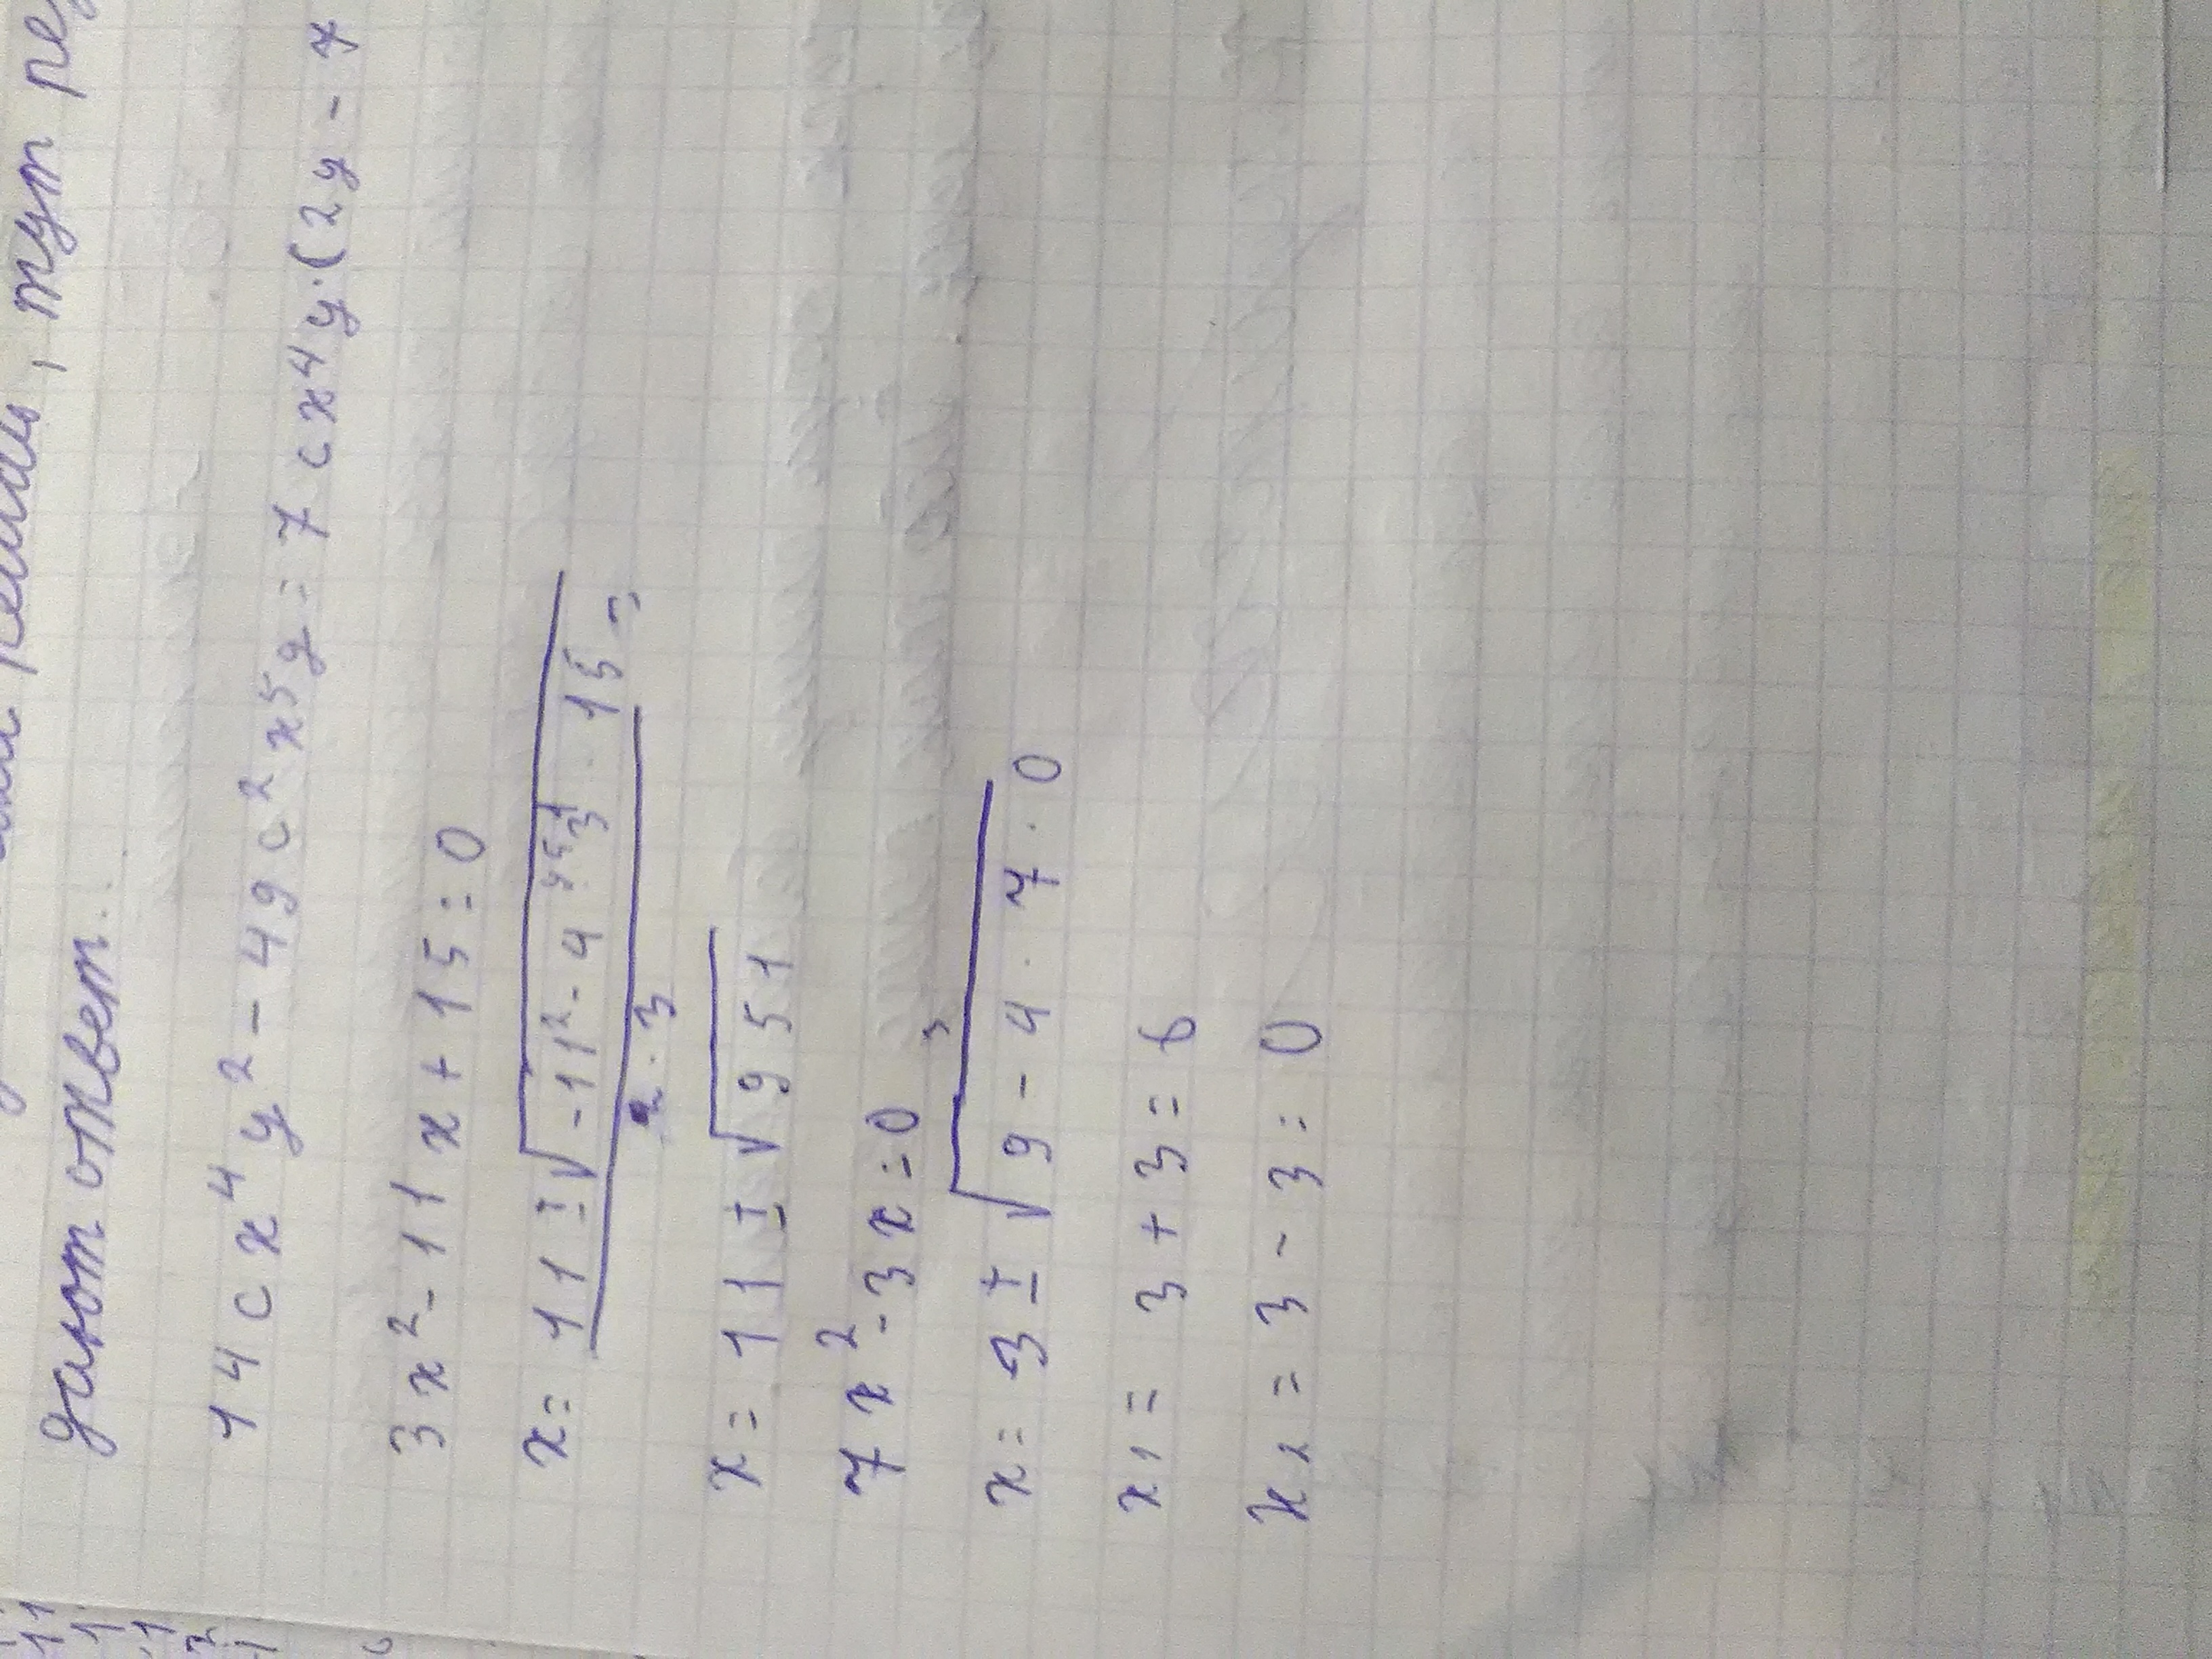 , тут
дают ответ.
14cx⁴y² - 49c²x⁵y = 7cx⁴y·(2y - 7
3x² - 11x + 15 = 0
x = 11 ± √-11² - 4 · 3 · 15 =
2 · 3
x = 11 ± √951
7x² - 3x = 0
x = 3 ± √9 - 4 · 7 · 0
x₁ = 3 + 3 = 6
x₂ = 3 - 3 = 0